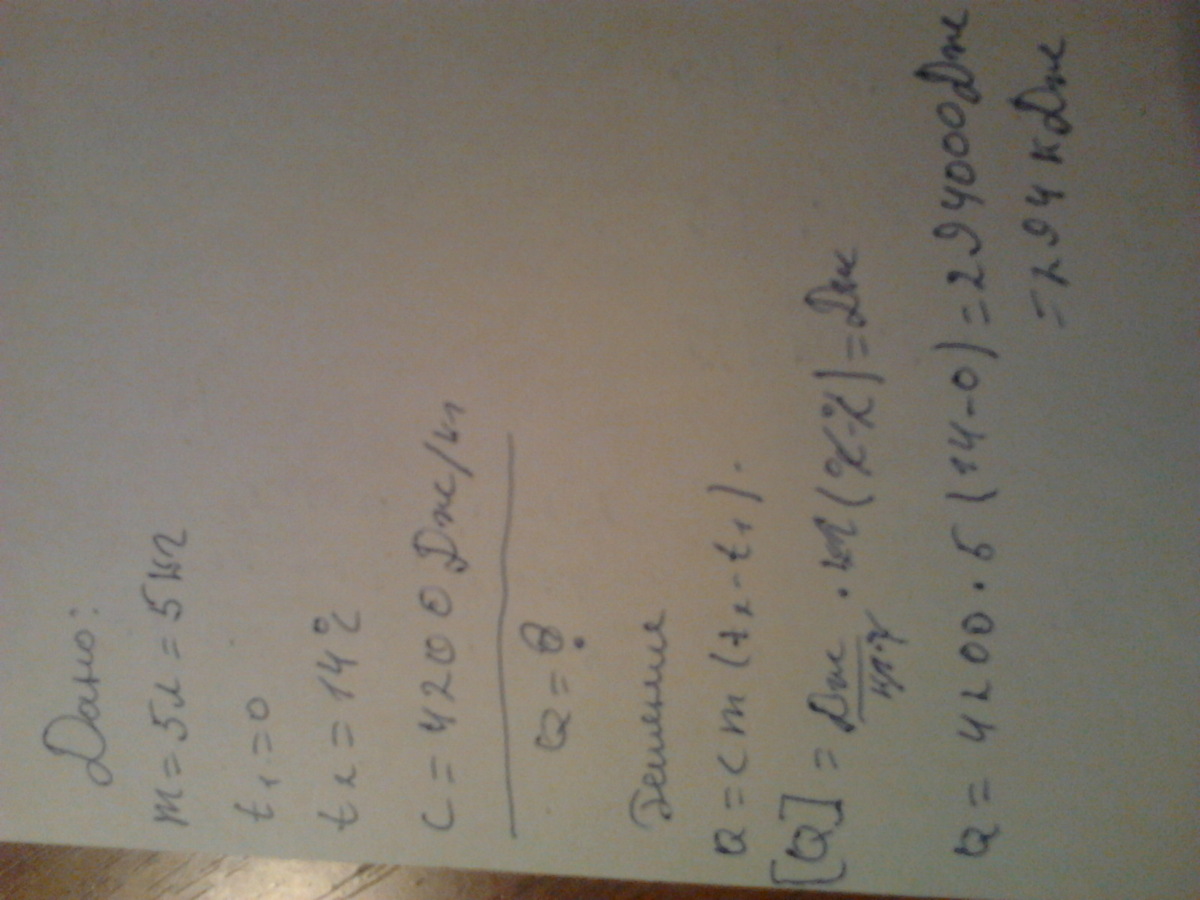 Дано:
m = 5л = 5 кг
t₁ = 0
t₂ = 14°C
c = 4200 Дж/кг
Q = ?
Решение
Q = cm (t₂ - t₁).
[Q] = Дж/кг·°C · кг (°C-°C) = Дж
Q = 4200 · 5 (14-0) = 294000 Дж
= 294 кДж